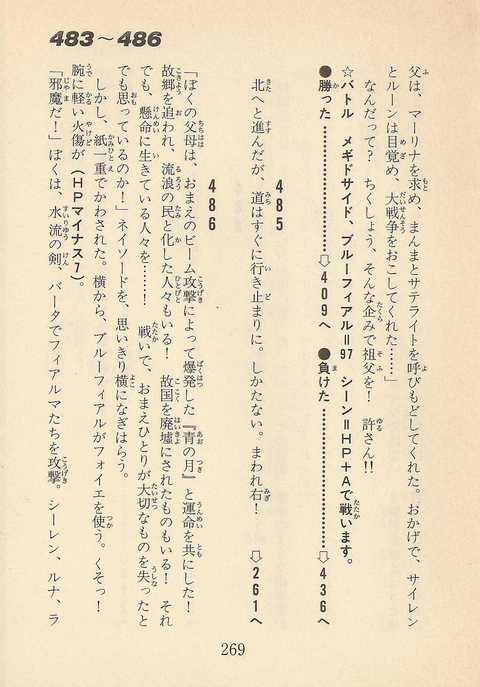 483～486
父は、マーリナを求め、まんまとサテライトを呼びもどしてくれた。おかげで、サイレン
とルーンは目覚め、大戦争をおこしてくれた……」
なんだって？　ちくしょう、そんな企みで祖父を！　許さん!!
☆バトル　メギドサイド、ブルーフィアル＝97　シーン＝ＨＰ＋Ａで戦います。
●勝った……………………⇨409へ　●負けた……………………⇨436へ
485
北へと進んだが、道はすぐに行き止まりに。しかたない。まわれ右！　⇨261へ
486
「ぼくの父母は、おまえのビーム攻撃によって爆発した『青の月』と運命を共にした！
故郷を追われ、流浪の民と化した人々もいる！　故国を廃墟にされたものもいる！　それ
でも、懸命に生きている人々を……！　戦いで、おまえひとりが大切なものを失ったと
でも思っているのか！」ネイソードを、思いきり横になぎはらう。
しかし、紙一重でかわされた。横から、ブルーフィアルがフォイエを使う。くそっ！
腕に軽い火傷が（ＨＰマイナス7）。
「邪魔だ！」ぼくは、水流の剣、バータでフィアルマたちを攻撃。シーレン、ルナ、ラ
269